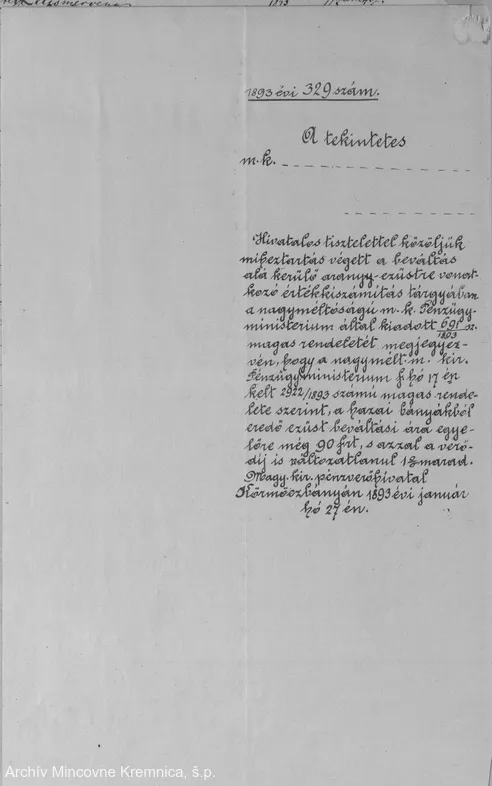 1893
1893 évi 329 szám.
A tekintetes
m. k.
Hivatalos tisztelettel közöljük
miheztartás végett a beváltás
alá kerülő arany-ezüstre vonat-
kozó értékkiszámítás tárgyában
a nagyméltóságú m. k. Pénzügy-
ministerium által kiadott 691/1893 sz.
magas rendeletét megjegyez-
vén, hogy a nagymélt. m. kir.
Pénzügyministerium f. hó 17 én
kelt 2922/1893 számú magas rende-
lete szerint, a hazai bányákból
eredő ezüst beváltási ára egye-
lőre még 90 frt, s azzal a verő-
díj is változatlanul 1% marad.
Magy. kir. pénzverőhivatal
Körmöczbányán 1893 évi január
hó 27 én.
Archív Mincovne Kremnica, š.p.